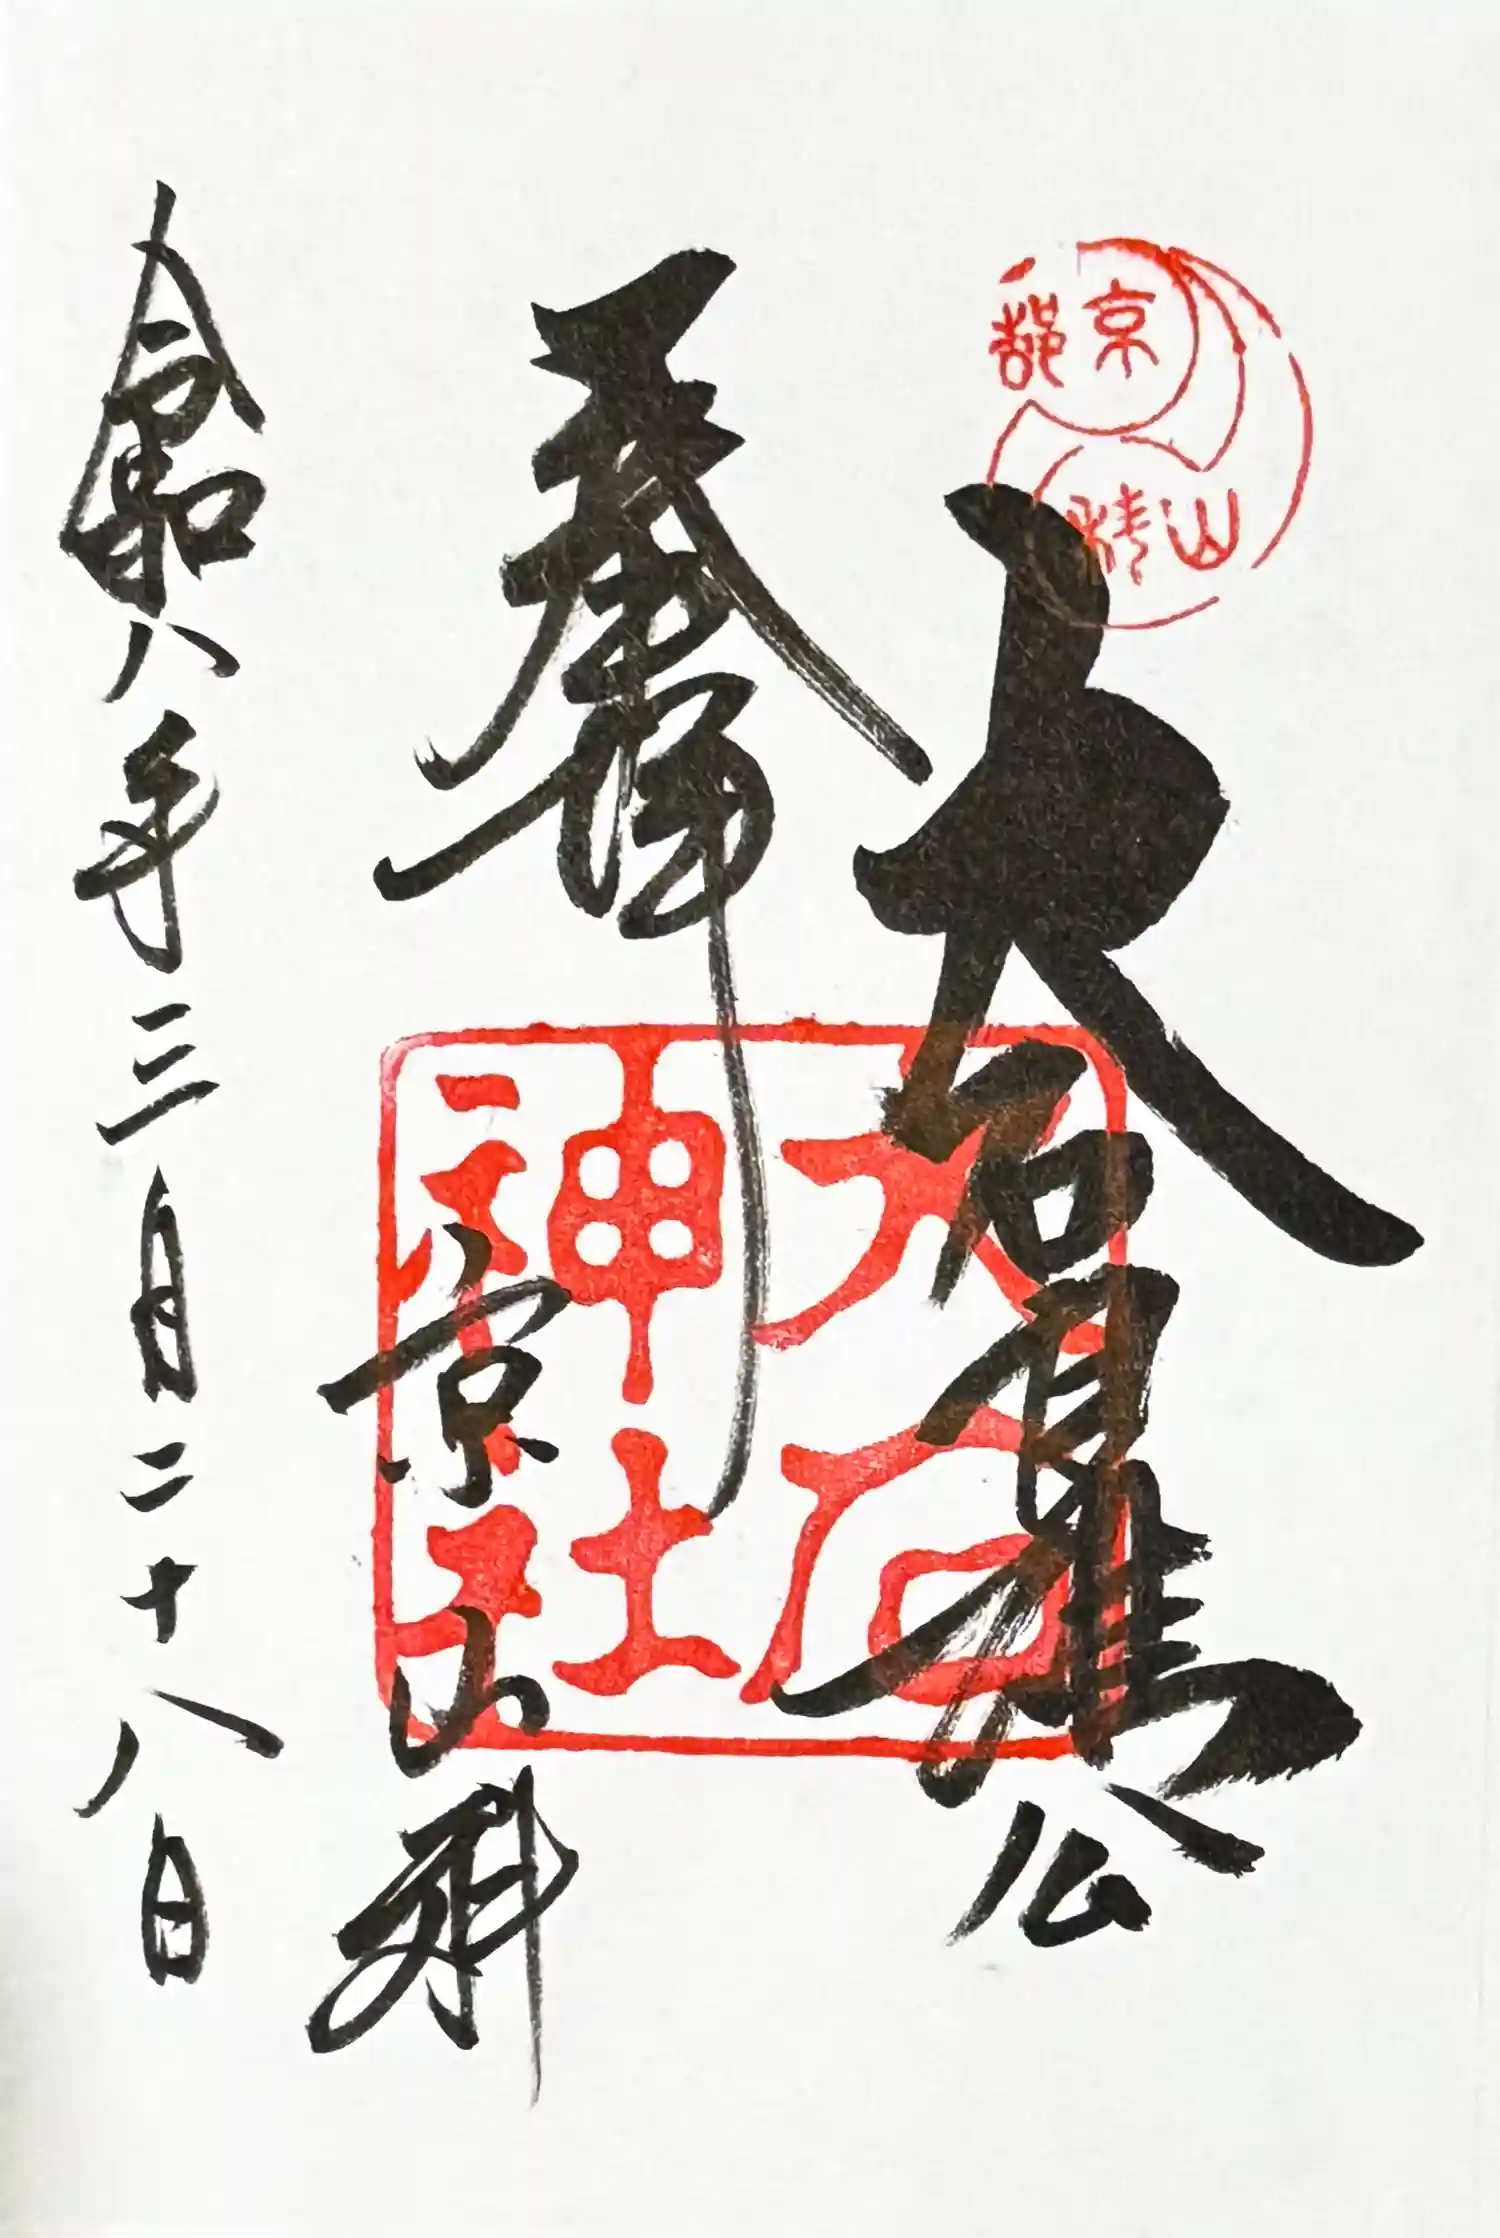 京都
山科
大石良雄公
大石
神社
奉拝
京山科
令和八年三月二十八日